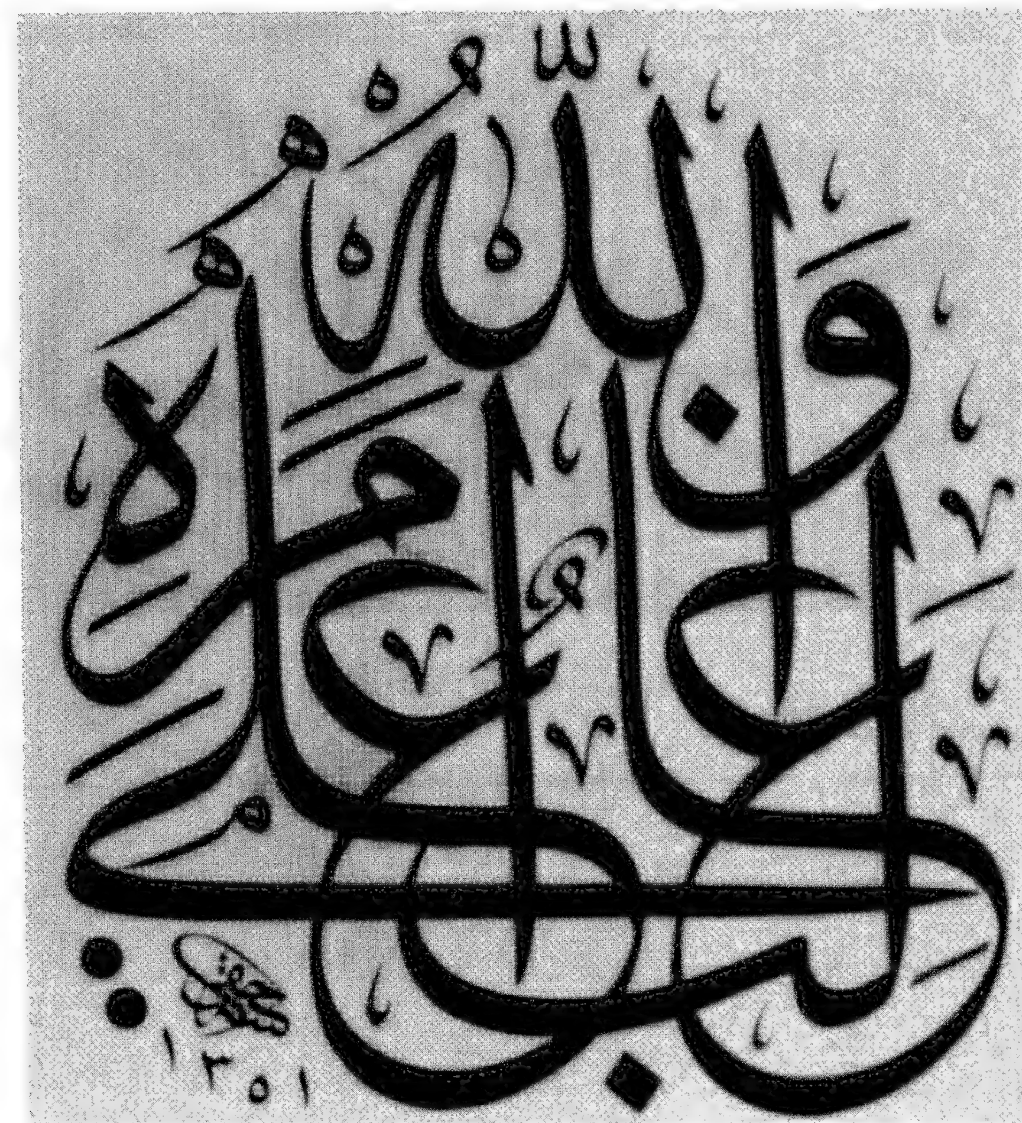 وَاللّٰهُ غَالِبٌ عَلٰى اَمْرِهِ
١٣٥١